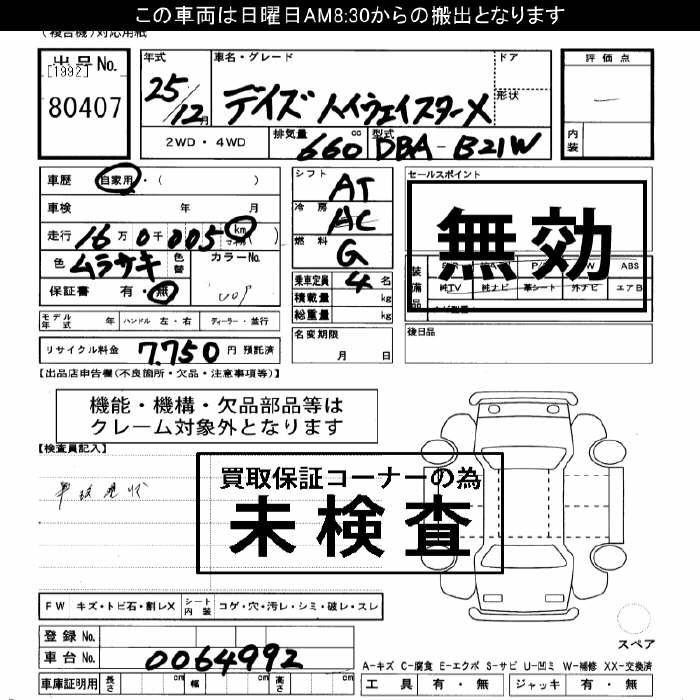 この車両は日曜日AM8:30からの搬出となります
(複合機)対応用紙
出品No.
[1992]
80407
年式 車名・グレード ドア
25/12月 デイズ ハイウェイスターX 形状
2WD・4WD 排気量 660 cc 型式 DBA-B21W
評価点
内装
車歴 自家用・( )
車検 年 月
走行 16万0千005 km マイル ( )
色 ムラサキ 色替 カラーNo.
保証書 有・無
モデル年式 年 ハンドル 左・右 ディーラー・並行
リサイクル料金 7,750 円 預託済
シフト AT
冷房 AC
燃料 G
乗車定員 4 名
積載量 kg
総重量 kg
名変期限
月 日
セールスポイント
無効
装備品
ABS
純TV 純ナビ 革シート 外ナビ エアB
後日品
【出品店申告欄(不良箇所・欠品・注意事項等)】
機能・機構・欠品部品等は
クレーム対象外となります
【検査員記入】
買取保証コーナーの為
未検査
FW キズ・トビ石・割レX シート内装 コゲ・穴・汚レ・シミ・破レ・スレ
登録No.
車台No. 0064992
車庫証明用 長さ cm 幅 cm 高さ cm
スペア
A-キズ C-腐食 E-エクボ S-サビ U-凹ミ W-補修 XX-交換済
工具 有・無 ジャッキ 有・無